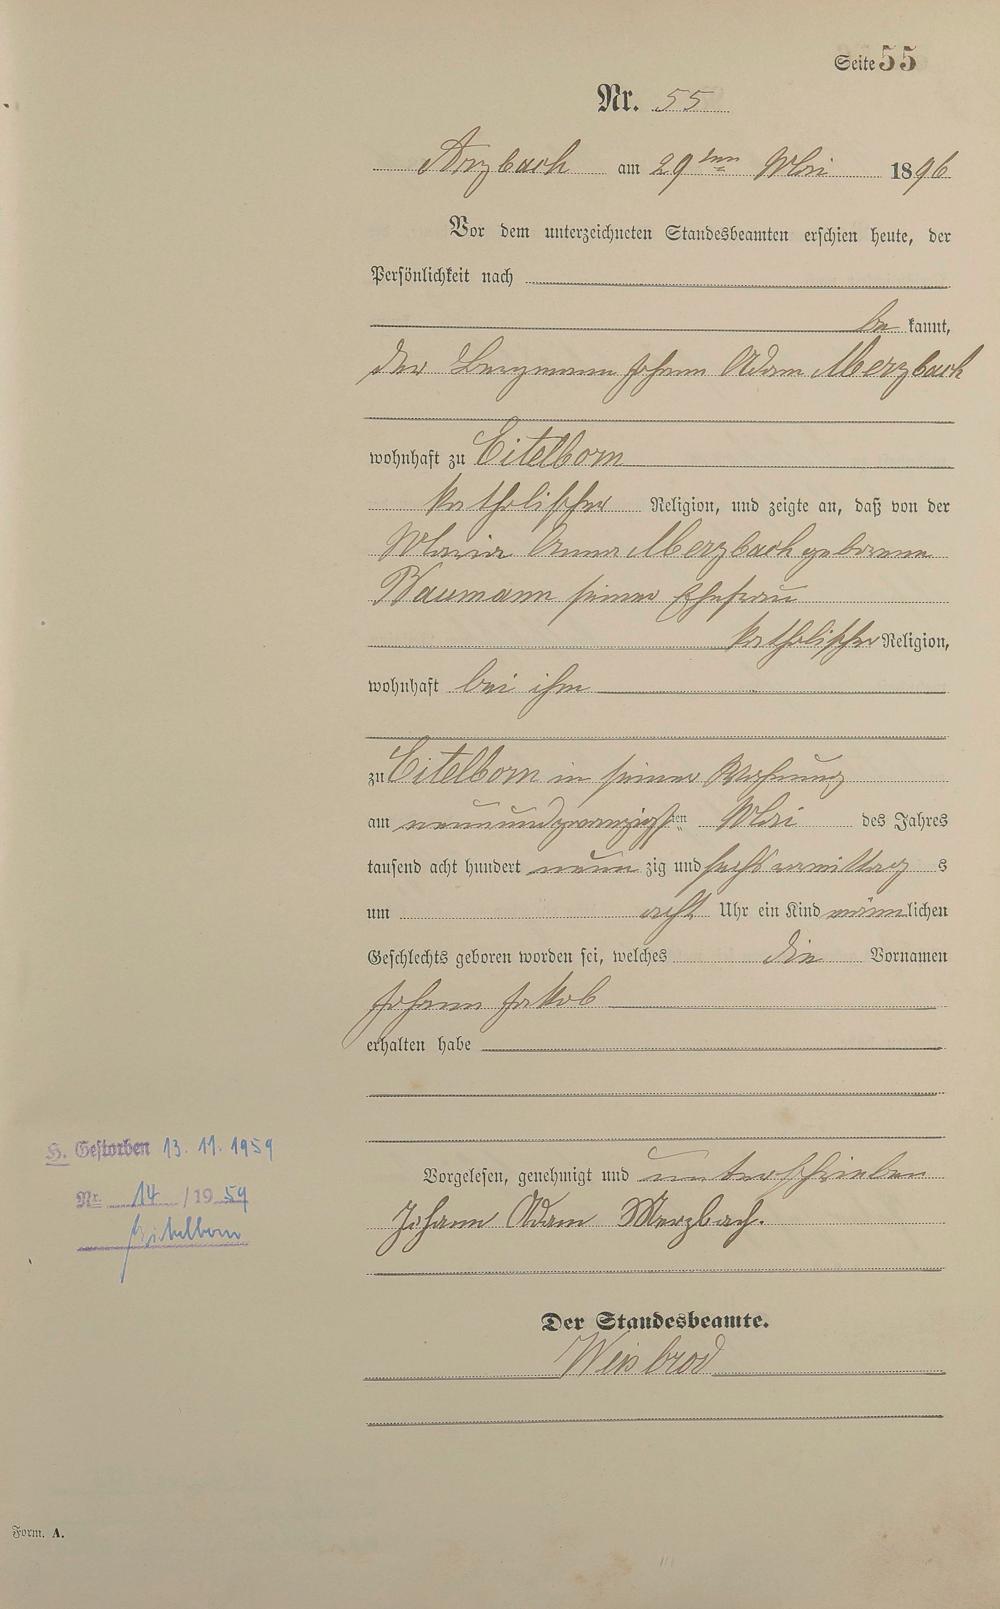 Seite 55
Nr. 55
Arzbach am 29ten Mai 1896
Vor dem unterzeichneten Standesbeamten erschien heute, der
Persönlichkeit nach
be kannt,
der Bergmann Johann Adam Merzbach
wohnhaft zu Eitelborn
katholischer Religion, und zeigte an, daß von der
Maria Anna Merzbach geborene
Baumann seiner Ehefrau
katholischer Religion,
wohnhaft bei ihm
zu Eitelborn in seiner Wohnung
am neunundzwanzigsten Mai des Jahres
tausend acht hundert neun zig und sechs vormittag s
um acht Uhr ein Kind männlichen
Geschlechts geboren worden sei, welches die Vornamen
Johann Jakob
erhalten habe
H. Gestorben 13. 11. 1959
Nr. 14 / 1959
Eitelborn
Vorgelesen, genehmigt und unterschrieben
Johann Adam Merzbach.
Der Standesbeamte.
Weisbrod
Form. A.